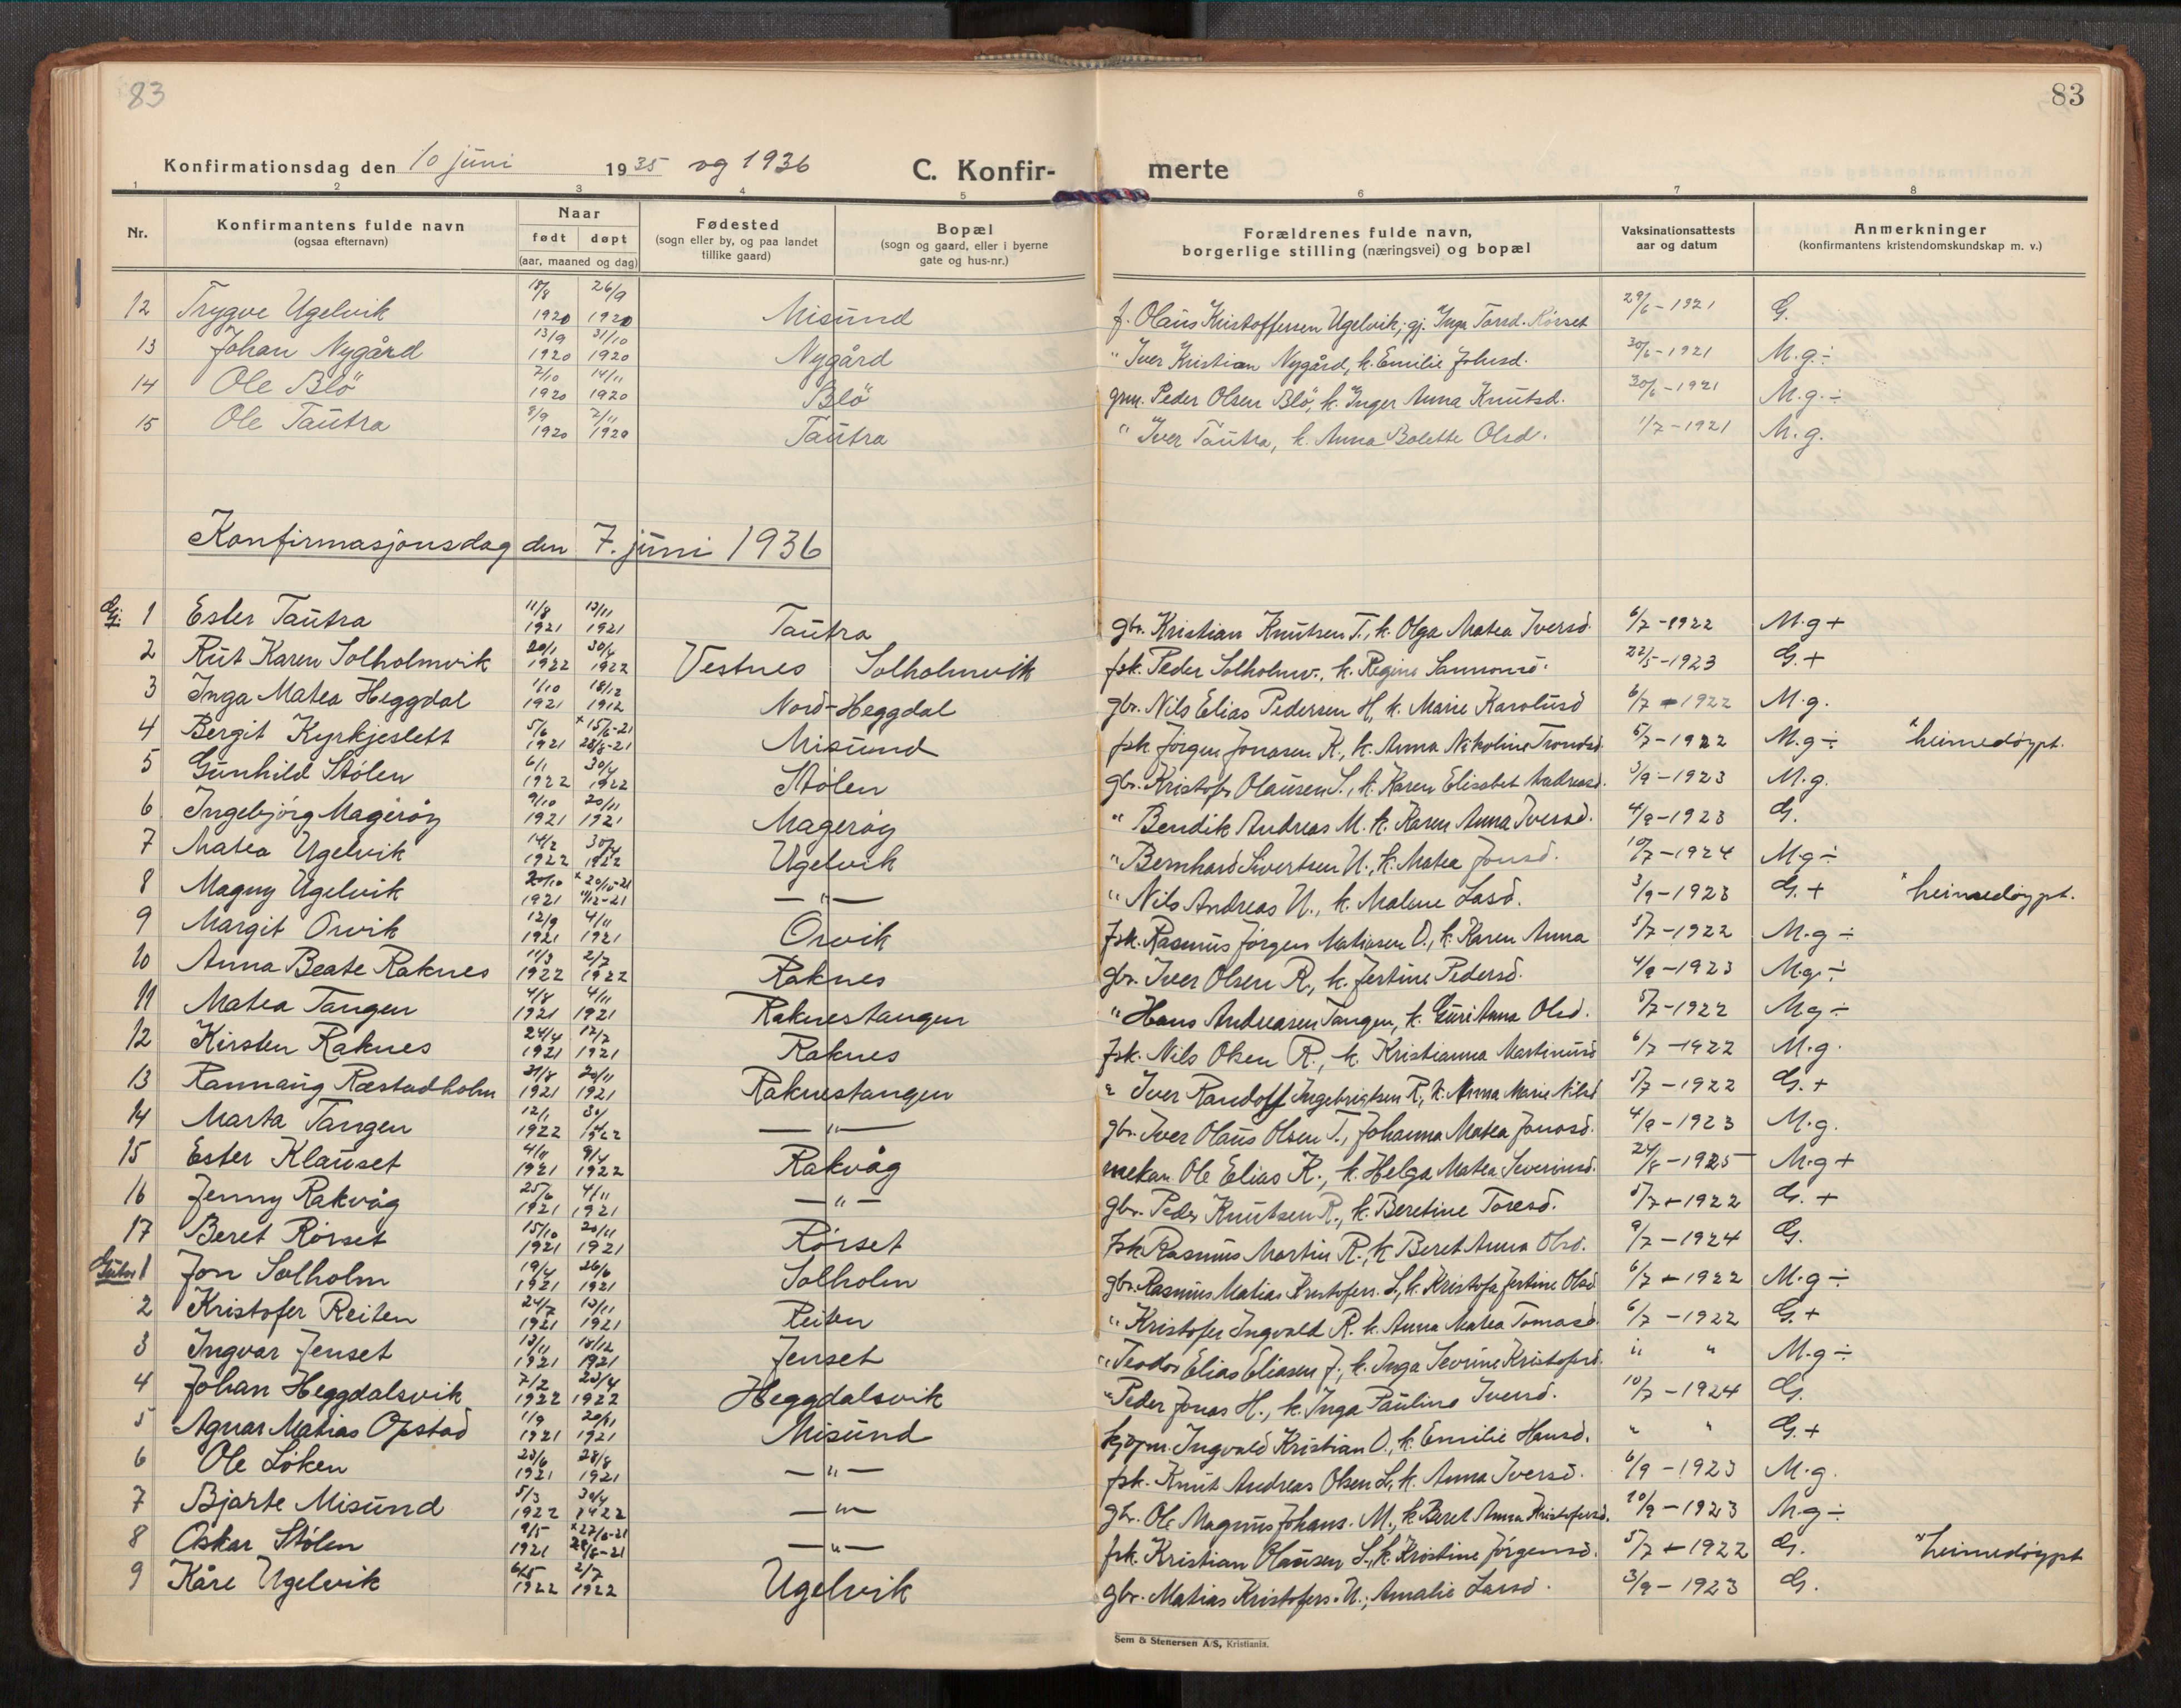 83
83
Konfirmationsdag den 10 juni 1935 og 1936 C. Konfir- merte
1 2 3 4 5 6 7 8
Nr. Konfirmantens fulde navn (ogsaa efternavn) Naar født døpt (aar, maaned og dag) Fødested (sogn eller by, og paa landet tillike gaard) Bopæl (sogn og gaard, eller i byerne gate og hus-nr.) Forældrenes fulde navn, borgerlige stilling (næringsvei) og bopæl Vaksinationsattests aar og datum Anmerkninger (konfirmantens kristendomskundskap m. v.)
12 Trygve Ugelvik 18/8 1920 26/9 1920 Misund f. Olaus Kristoffersen Ugelvik, gj. Inga Torsd. Rörset 29/6-1921 G.
13 Johan Nygård 13/9 1920 31/10 1920 Nygård " Iver Kristian Nygård, k. Emilie Johsd. 30/6-1921 M.g.÷
14 Ole Blö 7/10 1920 14/11 1920 Blö grm. Peder Olsen Blö, k. Inger Anna Knutsd. 30/6-1921 M.g.÷
15 Ole Tautra 8/9 1920 7/11 1920 Tautra " Iver Tautra, k. Anna Bolette Olsd. 1/7-1921 M.g.
Konfirmasjonsdag den 7. juni 1936
Gj. 1 Ester Tautra 11/8 1921 13/11 1921 Tautra gbr. Kristian Knutsen T., k. Olga Matea Iversd. 6/7-1922 M.g+
2 Rut Karen Solholmvik 20/1 1922 30/4 1922 Vestnes Solholmvik fsk. Peder Solholmv., k. Regine 22/5-1923 G.+
3 Inga Matea Heggdal 1/10 1921 18/12 1912 Nord-Heggdal gbr. Nils Elias Pedersen H, k. Marie Karolusd 6/7-1922 M.g.
4 Bergit Kyrkjeslett 5/6 1921 x15/6-21 28/8-21 Misund fsk Jörgen Jonasen K, k. Anna Nikoline Trondsd. 5/7-1922 M.g÷ x heimedöypt.
5 Gunhild Stölen 6/1 1922 30/4 1922 Stölen gbr. Kristofer Olausen S., k. Karen Elisabet Andreasd. 3/9-1923 M.g.
6 Ingebjörg Mageröy 9/10 1921 20/11 1921 Magerøy " Bendik Andreas M. k. Karen Anna Iversd. 4/9-1923 G.
7 Matea Ugelvik 14/2 1922 30/4 1922 Ugelvik " Bernhard Sivertsen U., k. Matea Jonsd. 10/7-1924 M.g÷
8 Magny Ugelvik 20/10 1921 x20/10-21 11/12-21 —"— " Nils Andreas U., k. Malene Lasd. 3/9-1923 G.+ x heimedöypt.
9 Margit Orvik 12/9 1921 4/11 1921 Orvik fsk. Rasmus Jörgen Matiasen O., k. Karen Anna 5/7-1922 M.g÷
10 Anna Beate Raknes 11/3 1922 2/7 1922 Raknes gbr. Iver Olsen R., k. Jertine Pedersd. 4/9-1923 M.g.÷
11 Matea Tangen 4/8 1921 4/11 1921 Raknestangen " Hans Andreasen Tangen, k. Guri Anna Olsd. 5/7-1922 M.g÷
12 Kirsten Raknes 24/4 1921 17/7 1921 Raknes fsk. Nils Olsen R., k. Kristianna Martinusd 6/7-1922 M.g.
13 Rannaug Ræstadholm 21/8 1921 20/11 1921 Raknestangen " Iver Randolf Ingebrigtsen R, k. Anna Marie Nilsd 5/7-1922 G.+
14 Marta Tangen 12/1 1922 30/4 1922 —"— gbr. Iver Olaus Olsen T., Johanna Matea Jonasd. 4/9-1923 M.g.
15 Ester Klauset 4/11 1921 9/4 1922 Rakvåg mekan. Ole Elias K., k. Helga Matea Severinsd. 24/8-1925 M.g+
16 Jenny Rakvåg 25/6 1921 4/11 1921 —"— gbr. Peder Knutsen R., k. Beretine Toresd. 5/7-1922 G.+
17 Beret Rörset 15/10 1921 20/11 1921 Rörset fsk Rasmus Martin R., k Beret Anna Olsd. 9/7-1924 G.
Guter 1 Jon Solholm 19/4 1921 26/6 1921 Solholm gbr. Rasmus Matias Kristofers. S., k. Kristofa Jertine Olsd 6/7-1922 M.g÷
2 Kristofer Reiten 24/7 1921 13/11 1921 Reiten " Kristofer Ingvald R. k. Anna Matea Tomasd. 6/7-1922 G.+
3 Ingvar Jenset 13/11 1921 18/12 1921 Jenset " Teodor Elias Eliasen J., k. Inga Severine Kristofersd. " " M.g÷
4 Johan Heggdalsvik 7/2 1922 23/4 1922 Heggdalsvik " Peder Jonas H., k. Inga Pauline Iversd. 10/7-1924 G.
5 Agnar Matias Opstad 1/9 1921 20/11 1921 Misund kjöpm. Ingvald Kristian O., k. Emilie Hansd. " " G.+
6 Ole Löken 23/6 1921 28/8 1921 —"— fsk. Knut Andreas Olsen L, k. Anna Iversd. 6/9-1923 M.g.
7 Bjarte Misund 5/3 1922 30/4 1922 —"— gbr. Ole Magnus Johans. M., k Beret Anna Kristofersd. 20/9-1923 M.g÷
8 Oskar Stölen 9/5 1921 x27/6-21 28/8-21 —"— fsk. Kristian Olausen S., k. Kristine Jörgensd. 5/7-1922 G. x heimedöypt
9 Kåre Ugelvik 6/5 1922 2/7 1922 Ugelvik gbr. Matias Kristofers. U., Amalie Larsd. 3/9-1923 G.
Sem & Stenersen A/S, Kristiania.